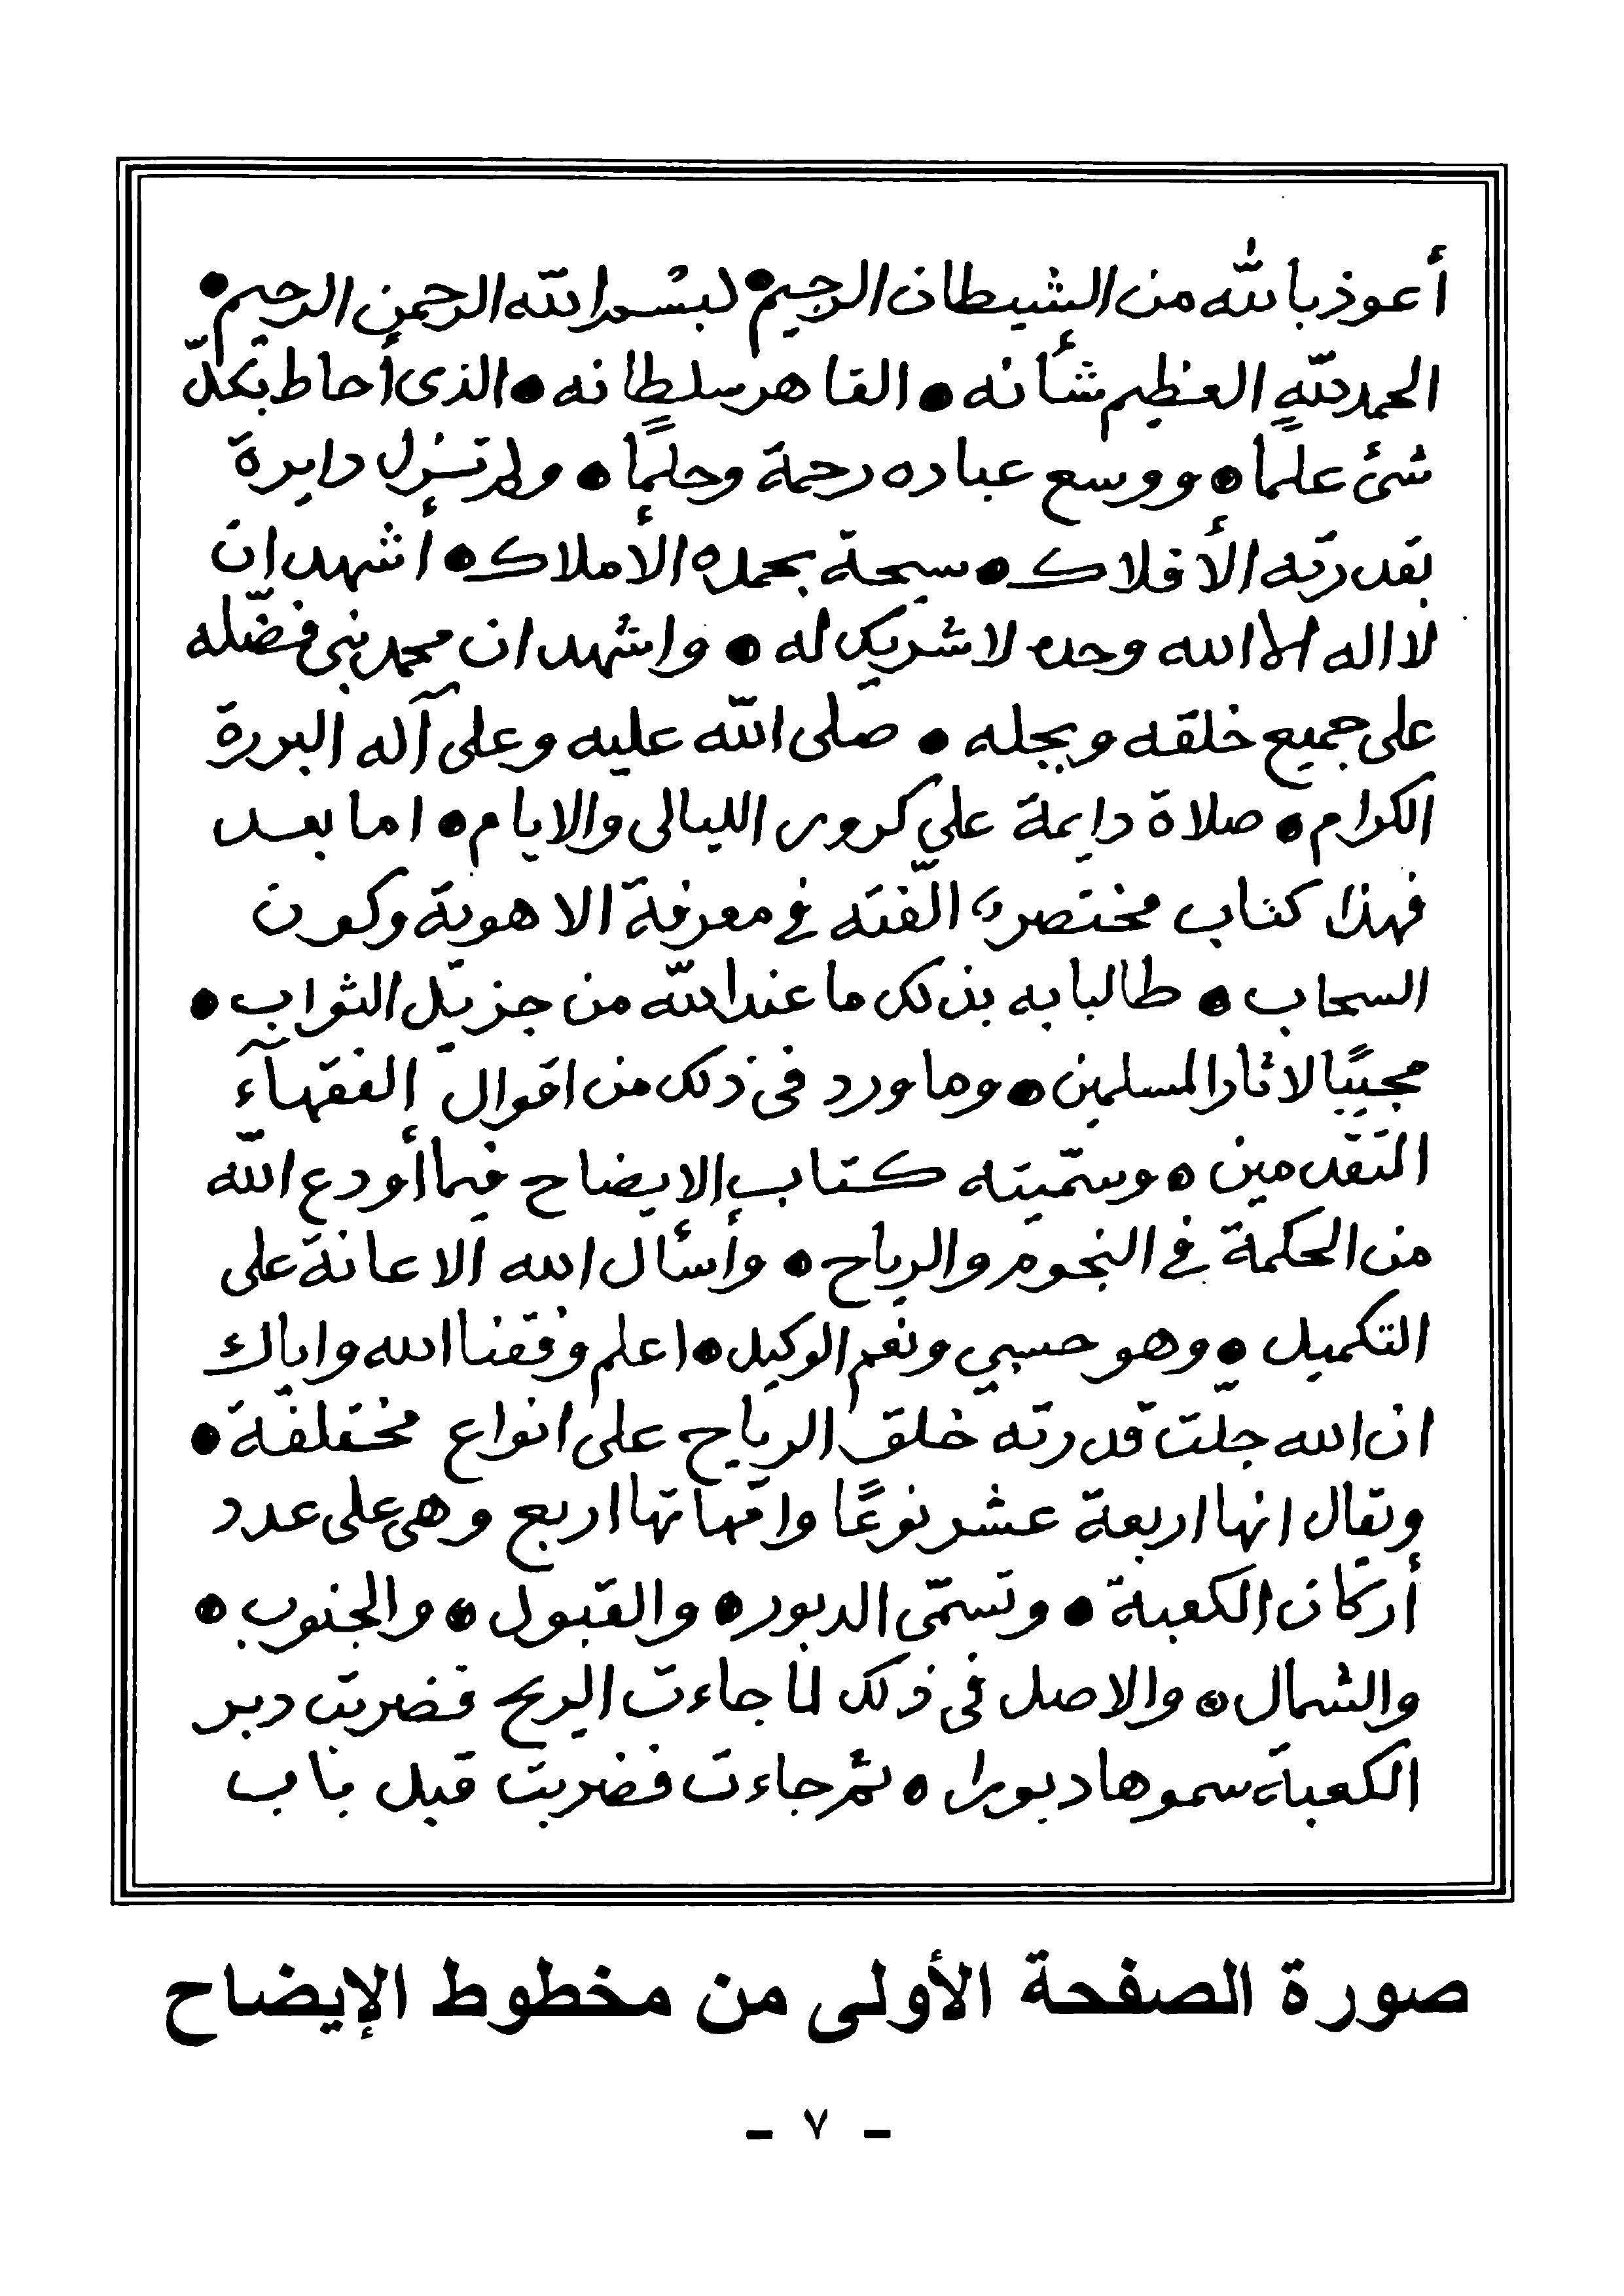 أعوذ بالله من الشيطان الرجيم • بسم الله الرحمن الرحيم •
الحمد لله العظيم شأنه • القاهر سلطانه • الذى أحاط بكلّ
شئ علمًا • ووسع عباده رحمة وحلمًا • ولم تزل دايرة
بقدرته الأفلاك • سبحة بحمده الأملاك • أشهد ان
لا اله الا الله وحده لا شريك له • واشهد ان محمد نبى فضّله
على جميع خلقه وبجله • صلى الله عليه وعلى آله البررة
الكرام • صلاة دايمة على كرور الليالى والايام • اما بعد
فهذا كتاب مختصر الّفته في معرفة الاهوية وكون
السحاب • طالبا به بذلك ما عند الله من جزيل الثواب •
مجيبًا لاثار المسلمين • وما ورد فى ذلك من اقوال الفقهآء
المتقدمين • وسمّيته كتاب الايضاح فيما أودع الله
من الحكمة في النجوم والرياح • وأسأل الله الاعانة على
التكميل • وهو حسبي ونعم الوكيل • اعلم وفقنا الله واياك
ان الله جلت قدرته خلق الرياح على انواع مختلفة •
ويقال انها اربعة عشر نوعًا وامّهاتها اربع وهى على عدد
أركان الكعبة • وتسمّى الدبور • والقبول • والجنوب •
والشمال • والاصل فى ذلك لما جاءت الريح فضربت دبر
الكعبة سموها دبورا • ثم جاءت فضربت قبل باب
صورة الصفحة الأولى من مخطوط الإيضاح
- ٧ -